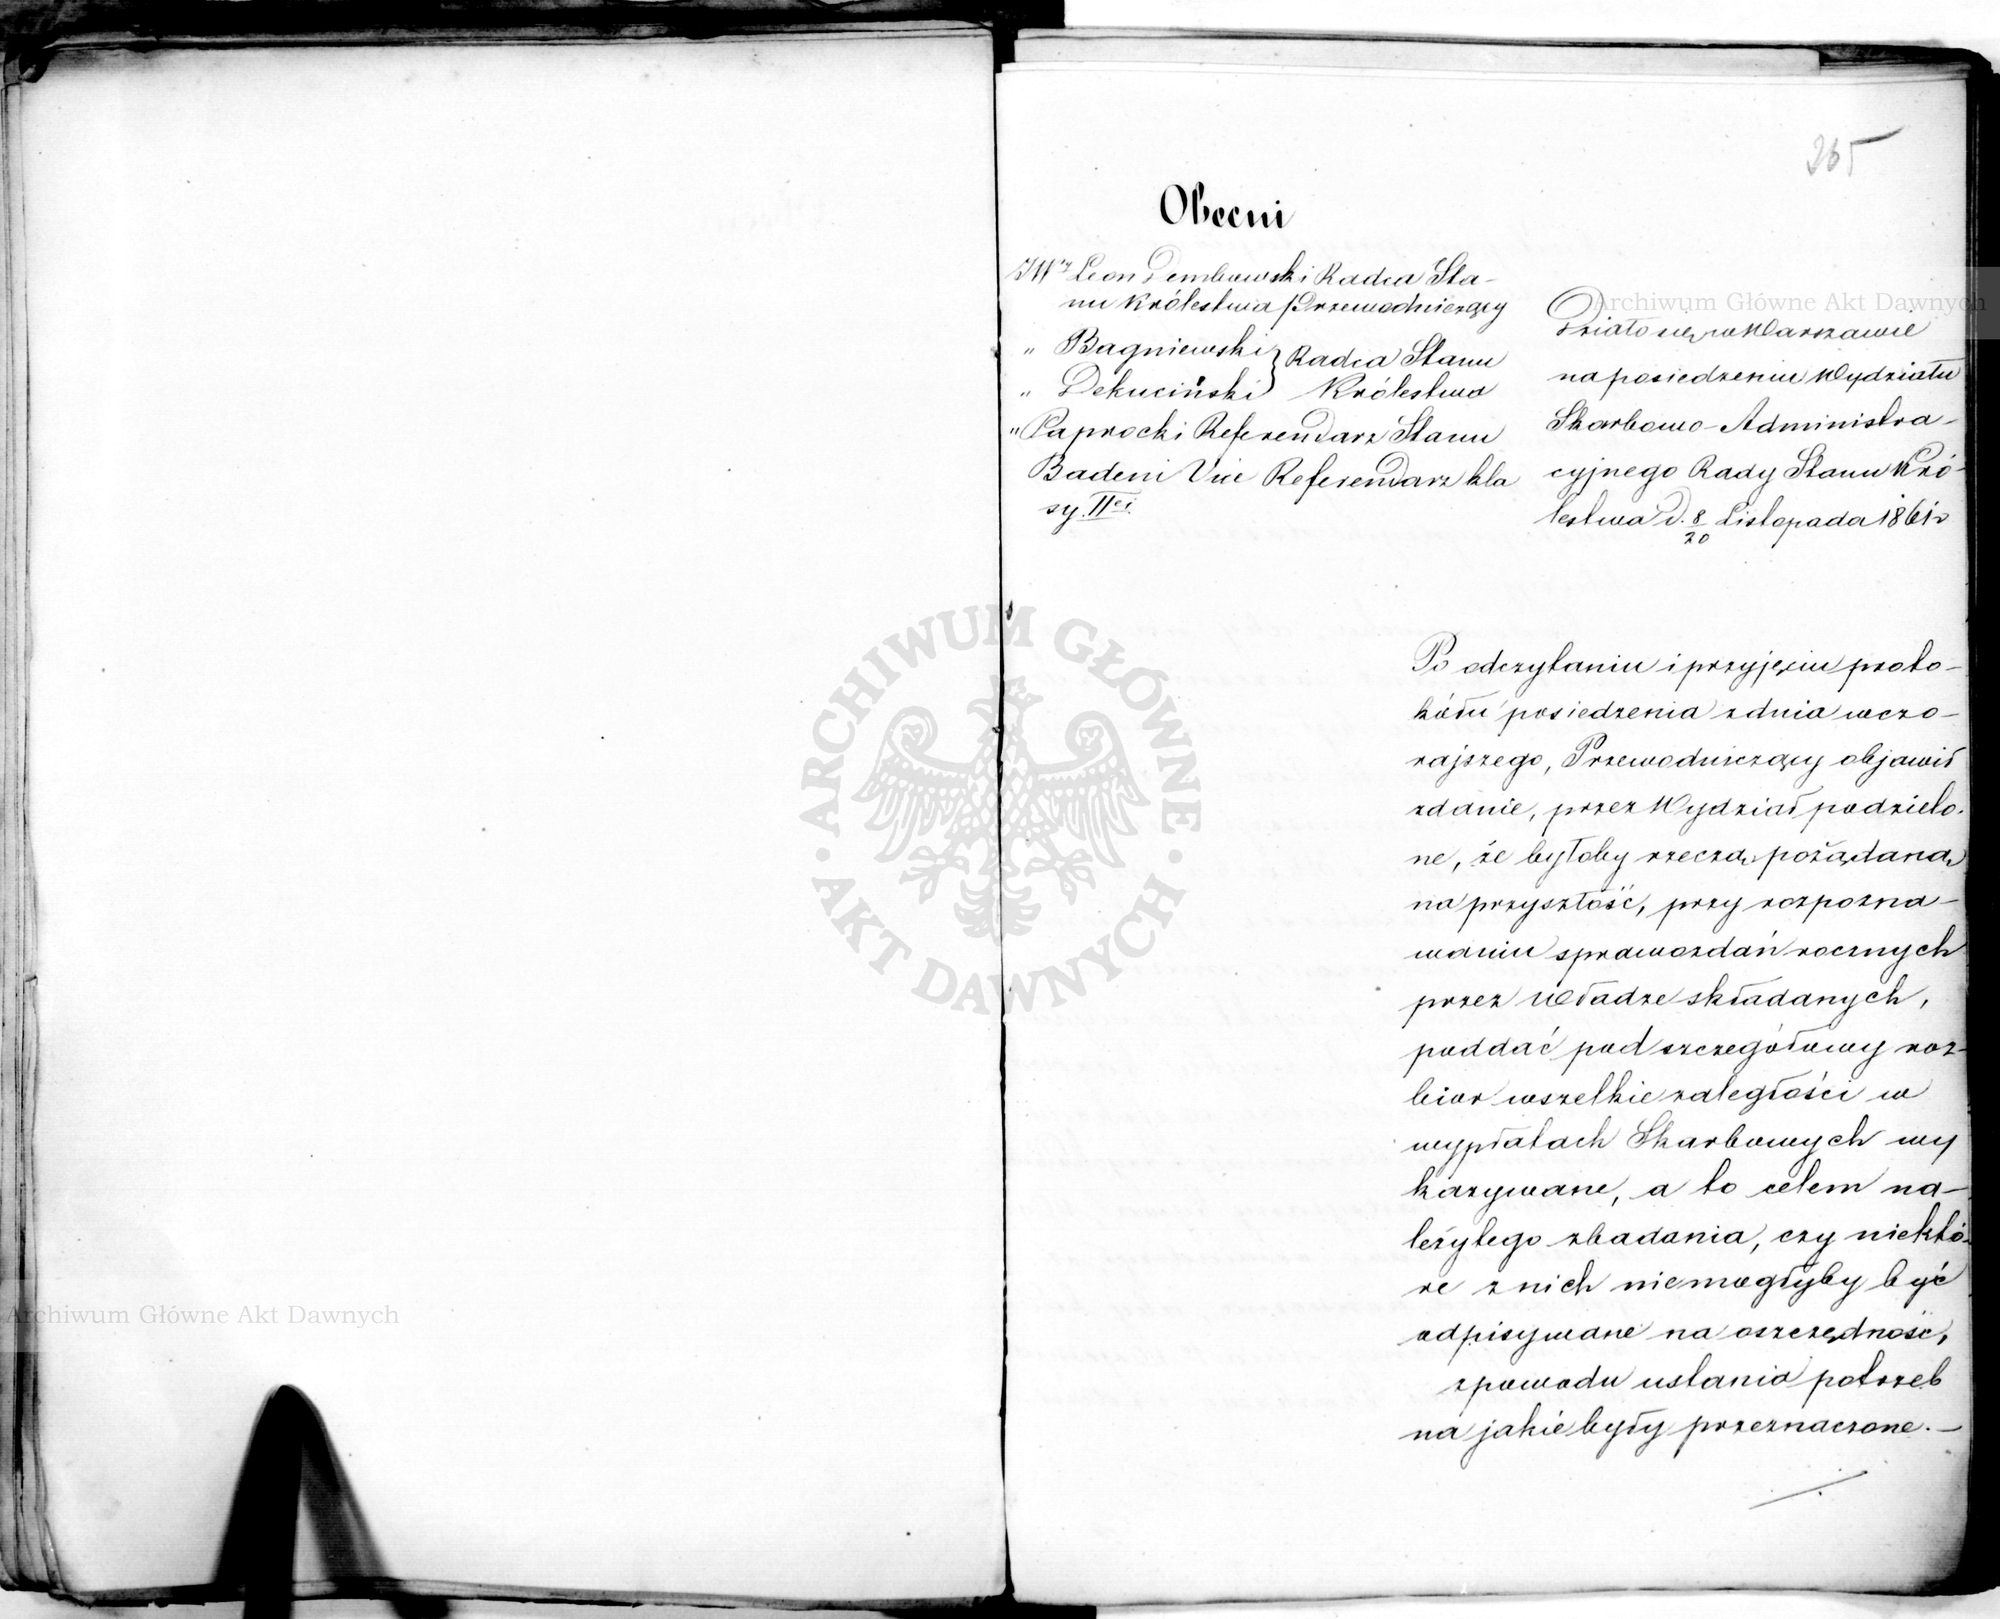 265
Obecni
JWny Leon Dembowski Radca Sta-
nu Królestwa Przewodniczący
" Bagniewski } Radca Stanu
" Dekuciński } Królestwa
" Paprocki Referendarz Stanu
Badeni Vice Referendarz kla
sy IIej
Działo się w Warszawie
na posiedzeniu Wydziału
Skarbowo-Administra-
cyjnego Rady Stanu Kró-
lestwa D. 8/20 Listopada 1861 r
Po odczytaniu i przyjęciu proto-
kółu posiedzenia z dnia wczo-
rajszego, Przewodniczący objawił
zdanie, przez Wydział podzielo-
ne, że byłoby rzeczą pożądaną
na przyszłość, przy rozpozna-
waniu sprawozdań rocznych
przez Władze składanych,
poddać pod szczegółowy roz-
biór wszelkie zaległości w
wypłatach Skarbowych wy
kazywane, a to celem na-
leżytego zbadania, czy niektó-
re z nich niemogłyby być
odpisywane na oszczędność,
z powodu ustania potrzeb
na jakie były przeznaczone.—
ARCHIWUM GŁÓWNE
AKT DAWNYCH
Archiwum Główne Akt Dawnych
Archiwum Główne Akt Dawnych